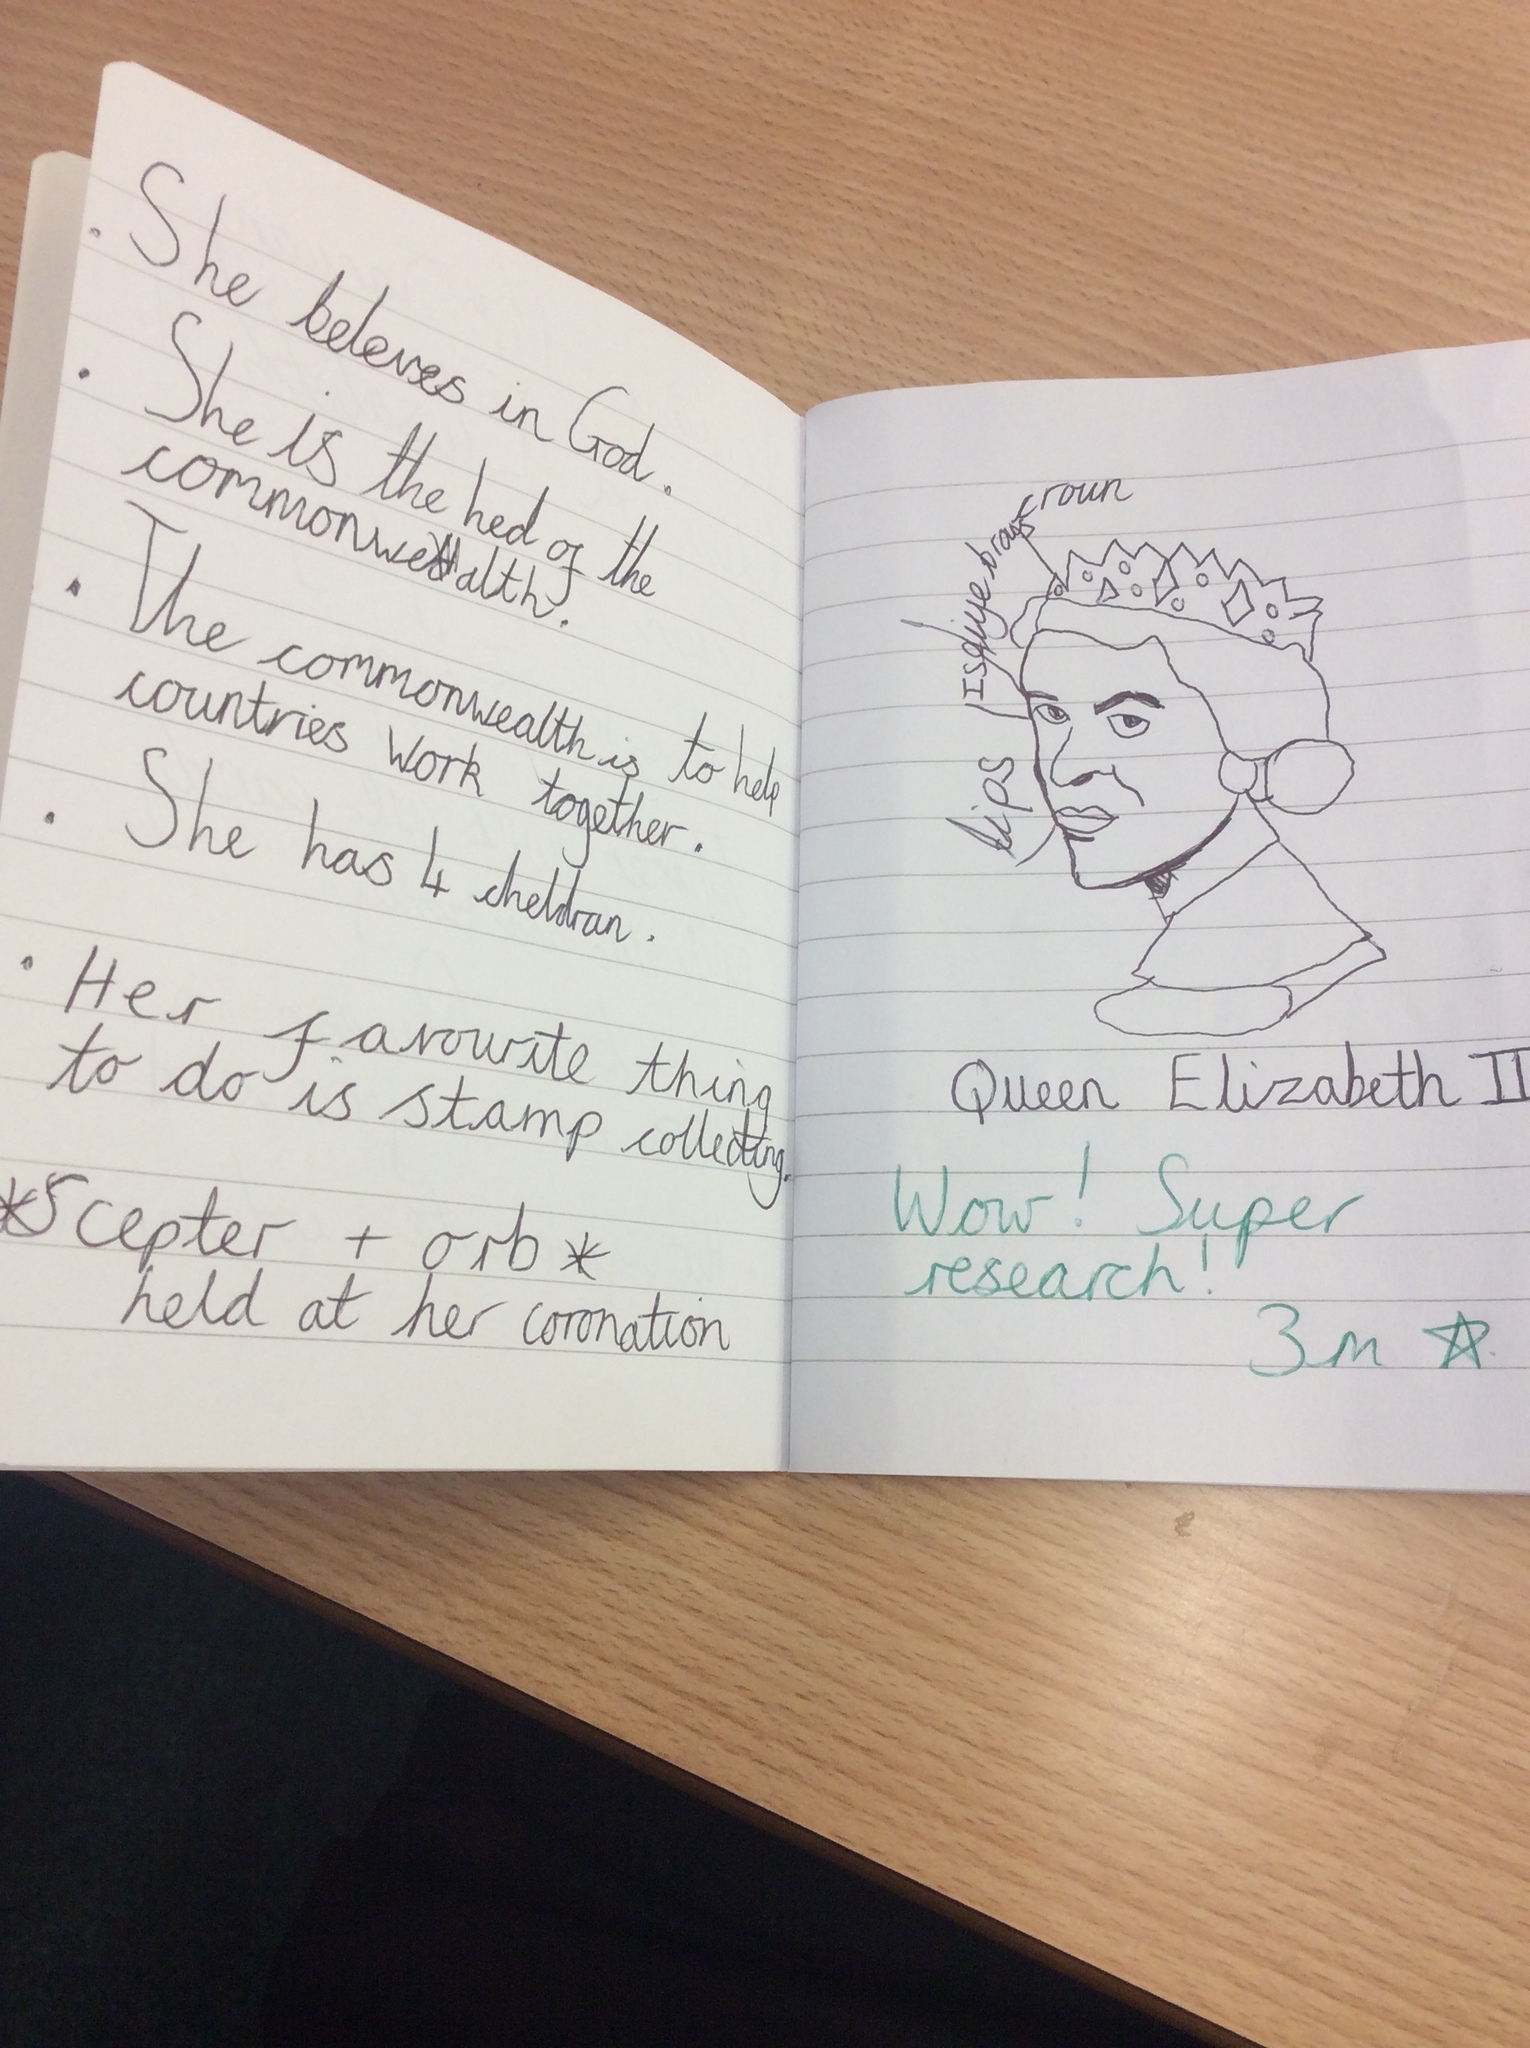 . She beleves in God.
. She is the hed of the
commonwealth.
. The commonwealth is to help
countries work together.
. She has 4 cheldran.
. Her favourite thing
to do is stamp collecting.
*Scepter + orb *
held at her coronation
croun
lips
Queen Elizabeth II
Wow! Super
research!
3m ☆